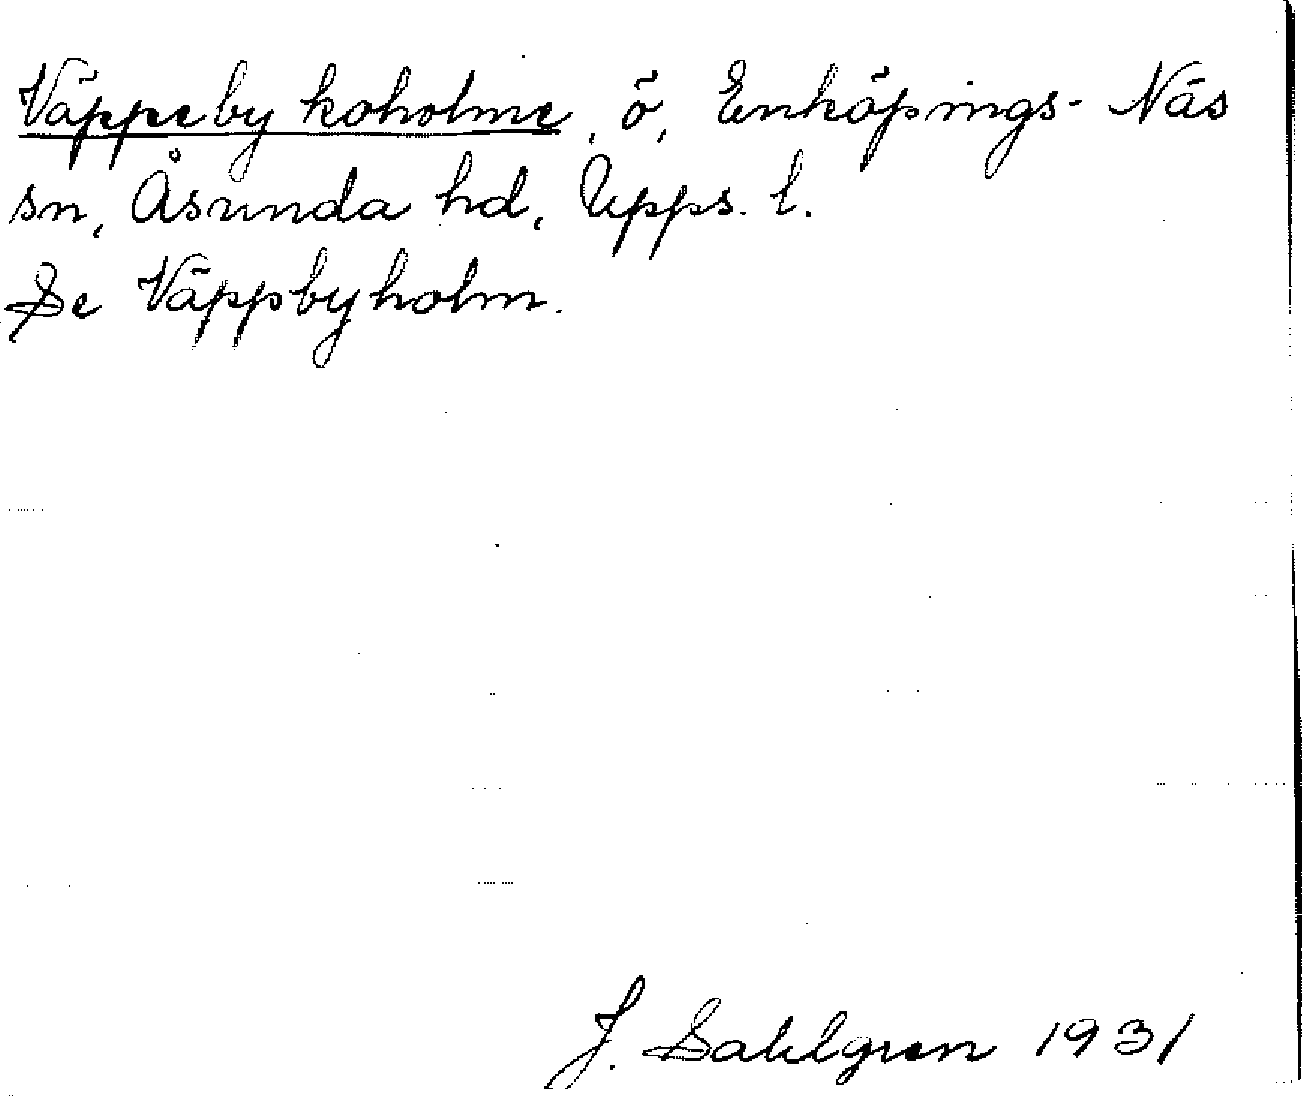 Väppeby koholme, ö, Enköpings-Näs
sn, Åsunda hd, Upps. l.
Se Väppbyholm.
J. Sahlgren 1931